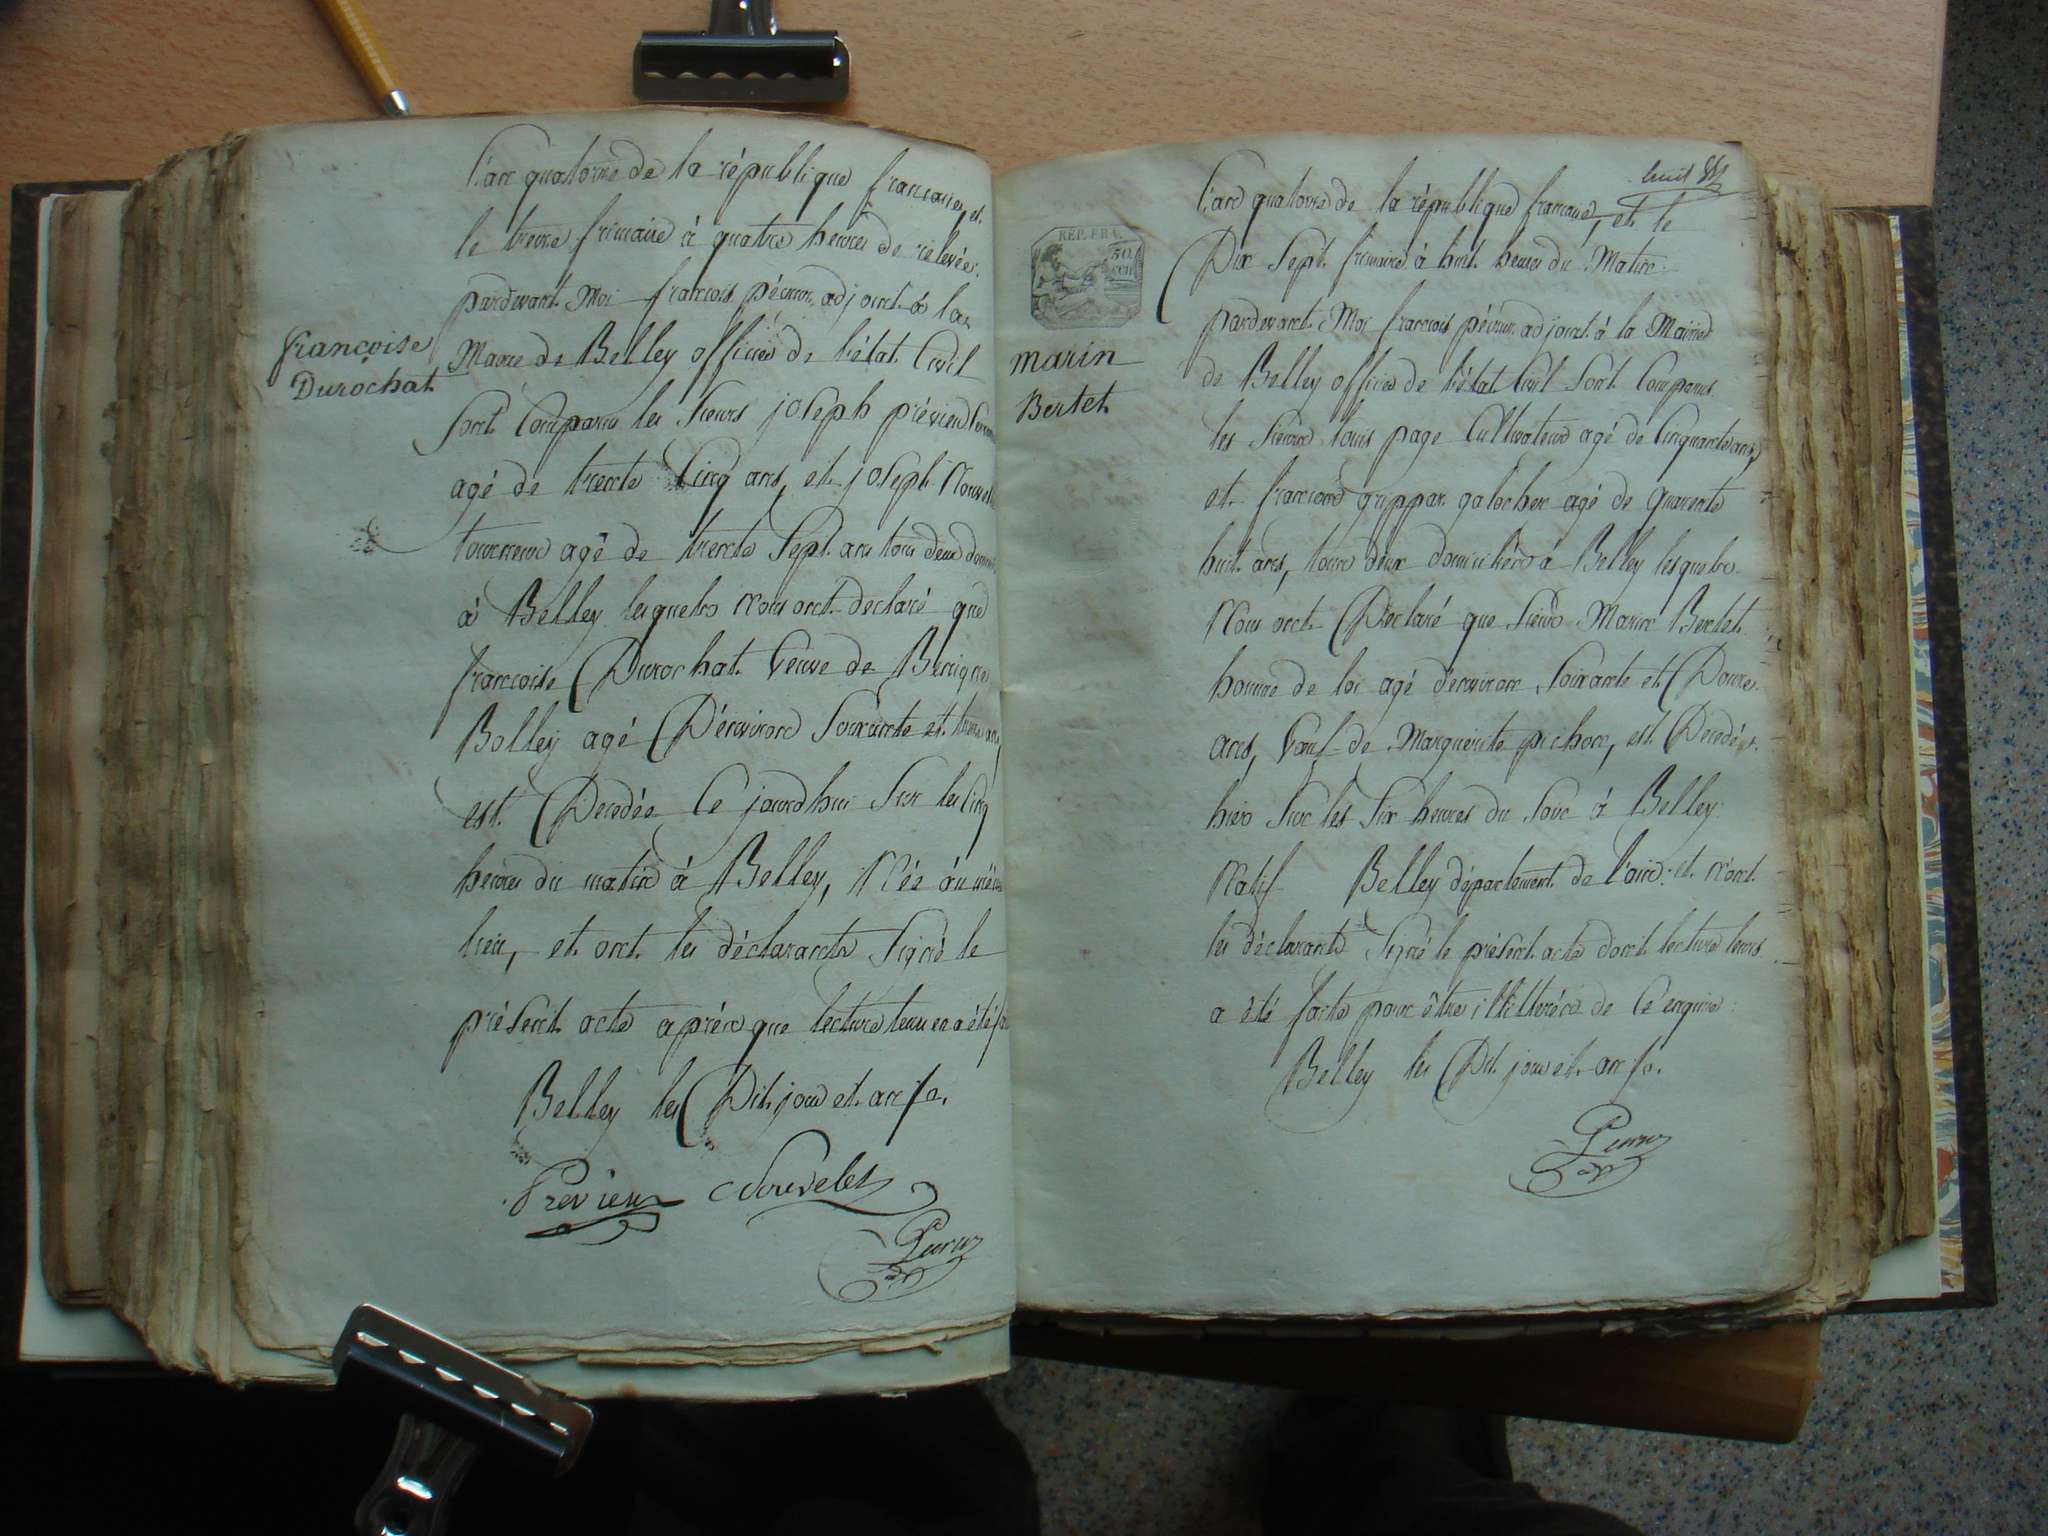 l'an quatorze de la république française, et
le treize frimaire à quatre heures de relevée.
pardevant Moi françois pécruz adjoint à la
Mairie de Belley officier de l'état Civil
Sont Comparu les Sieurs joseph prévieu
agé de trente Cinq ans, et joseph Nouvelet
tourneur agé de trente Sept ans tous deux
à Belley lesquels Nous ont declaré que
françoise Durochat Veuve de Benigne
Bolley agé D'environ Soixante et treize ans,
est Decedée Ce jourd'hui Sur les Cinq
heures du matin à Belley, Née au même
lieu, et ont les déclarants Signé le
présent acte après que lecture leur en a été
Belley les Dit jour et an
Prévieux Nouvelet
françoise
Durochat
huit
REP. FRA.
50
marin
Bertet
l'an quatorze de la république française, et le
Dix Sept frimaire à huit heures du Matin.
pardevant Moi françois adjoint à la Mairie
de Belley officier de l'état Civil Sont Comparus
les Sieurs louis page Cultivateur agé de Cinquante ans,
et françois grippar galocher agé de quarente
huit ans, tous deux domiciliés à Belley lesquels
Nous ont Declaré que Sieur Marin Bertet
homme de loi agé d'environ Soixante et Douze
ans, Veuf de Marguerite pichon, est Decedé
hier Sur les Six heures du Soir à Belley
Natif Belley département de l'ain. et n'ont
les déclarants Signé le présent acte dont lecture leurs
a été faite pour être illitterés de Ce enquis
Belley les Dit jour et an